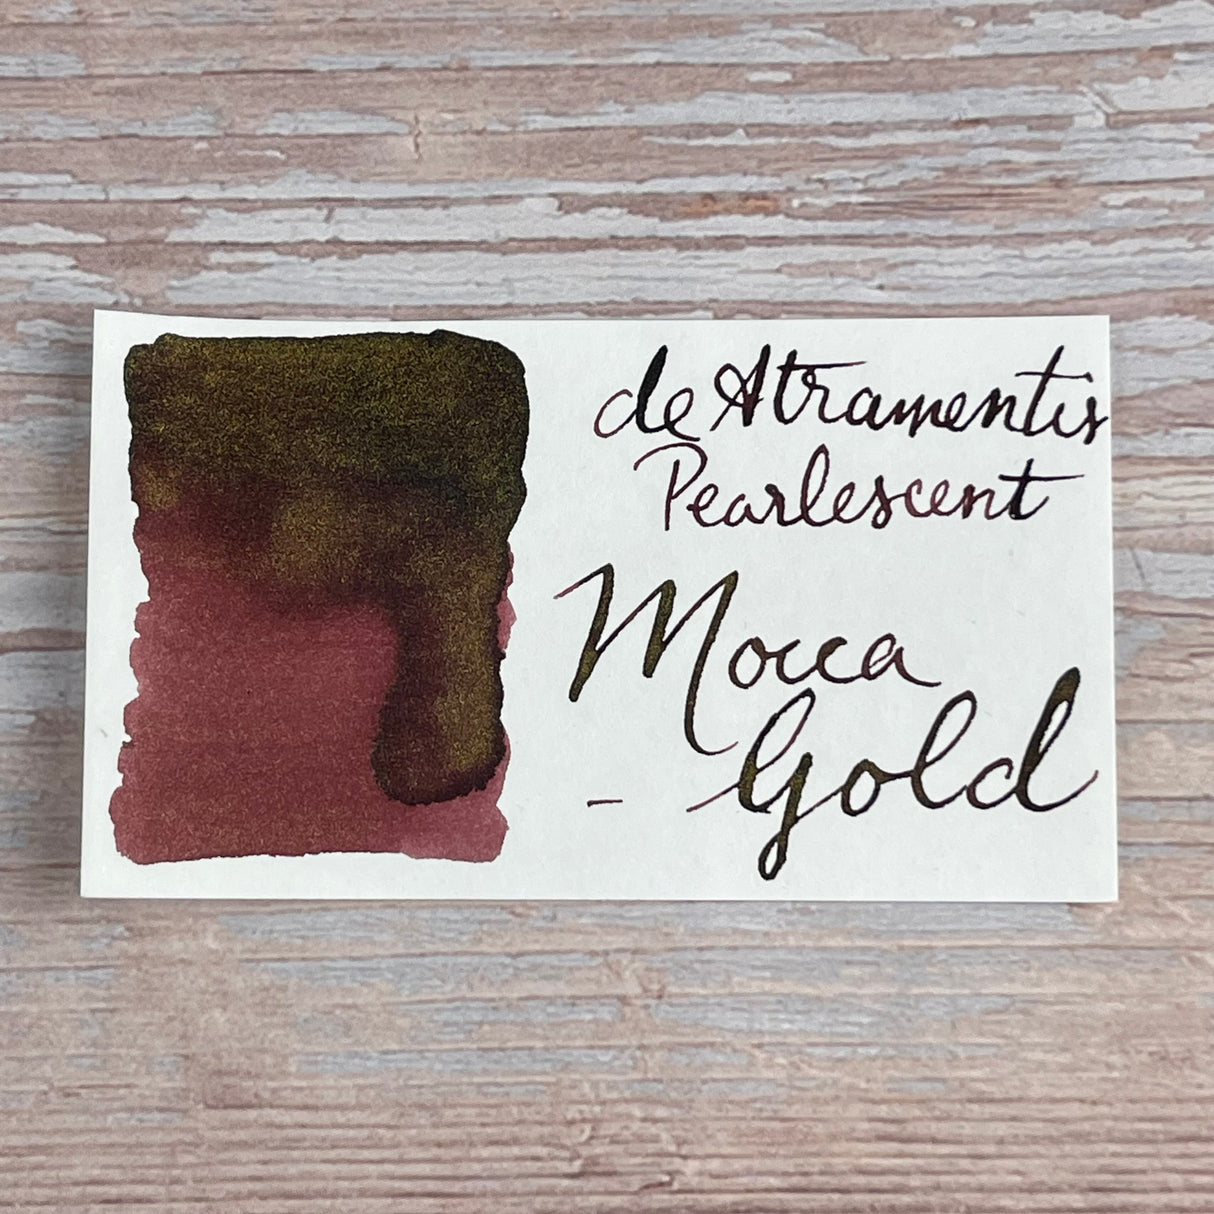 de Atramentis
Pearlescent
Mocca
- Gold